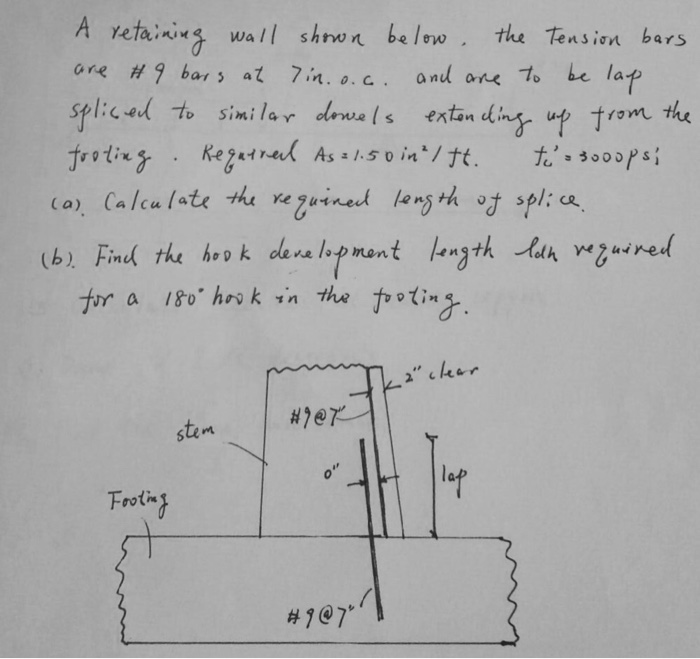 A retaining wall shown below. the Tension bars
are #9 bars at 7in. o.c. and are to be lap
spliced to similar dowels extending up from the
footing. Required As=1.50in²/ft. fc'=3000psi
(a). Calculate the required length of splice.
(b). Find the hook development length ldh required
for a 180° hook in the footing.
2" clear
#9@7"
stem
0"
lap
Footing
#9@7"